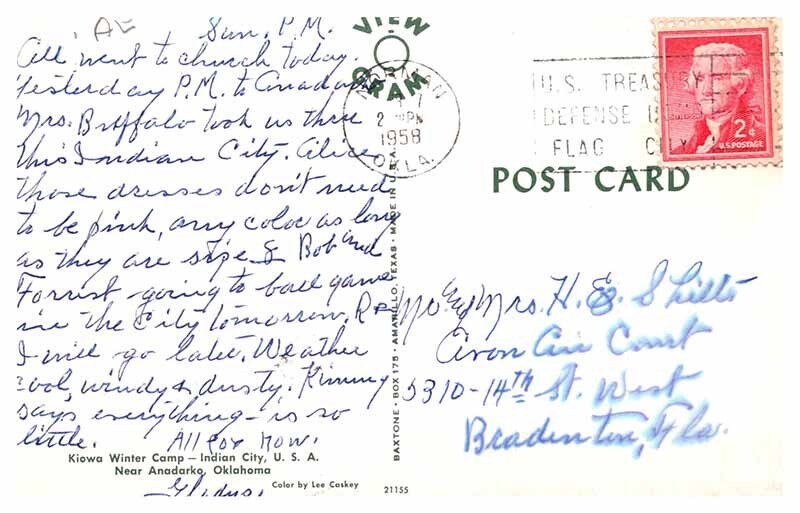 AE
Sun. P.M.
All went to church today.
Yesterday P.M. to Anadarko
Mrs. Buffalo took us thru
this Indian City. Alice
those dresses don't need
to be pink, any color as long
as they are size 8. Bob and
Forrest going to ball game
in the City tomorrow. R &
I will go later. Weather
cool, windy & dusty. Kimmy
says everything is so
little. All for now.
Gladys.
Kiowa Winter Camp — Indian City, U. S. A.
Near Anadarko, Oklahoma
Color by Lee Caskey
21155
BAXTONE - BOX 175 - AMARILLO, TEXAS - MADE IN U.S.A.
VIEW
GRAM
NORMAN
2 PM
1958
OKLA.
U.S. TREASURY
DEFENSE
FLAG CITY
2¢
U.S. POSTAGE
POST CARD
Mr & Mrs. H. E. Shilts
Avon Air Court
5310-14th St. West
Bradenton, Fla.